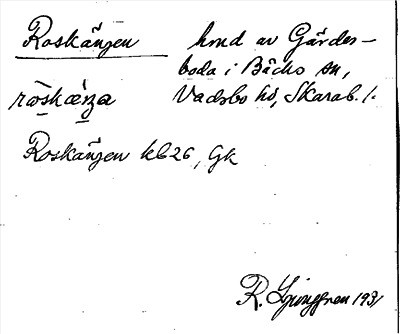 Roskängen hmd av Gårdes-
boda i Bäcks sn,
røskæŋa Vadsbo hd, Skarab. l.
Roskängen kb 26, Gk
R. Ljunggren 1931